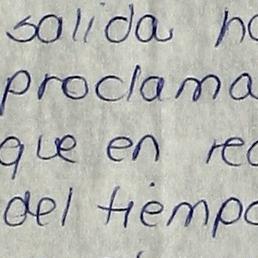 salida
proclama
que en
del tiempo